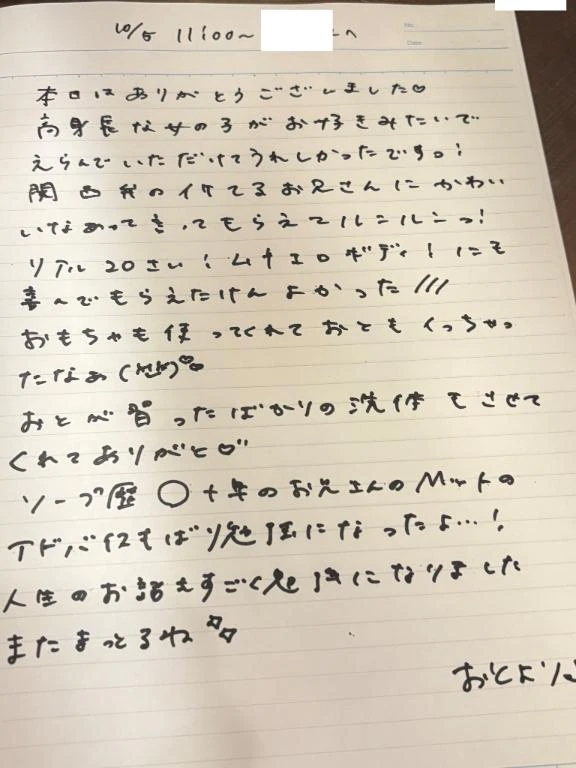 10/5 11:00〜 へ
No.
Date
本日はありがとうございました♡
高身長な女の子がお好きみたいで
えらんでいただけてうれしかったですっ!
関西弁のイケてるお兄さんにかわい
いなあって言ってもらえてルンルンっ!
リアル20さい!ムチエロボディ!にも
喜んでもらえたけんよかった///
おもちゃも使ってくれておともイっちゃっ
たなぁ(照)♡♡
おとが習ったばかりの洗体もさせて
くれてありがと♡"
ソープ歴 ◯十年のお兄さんのマットの
アドバイスもばり勉強になったよ…!
人生のお話もすごく勉強になりました
またまっとるね
おとより